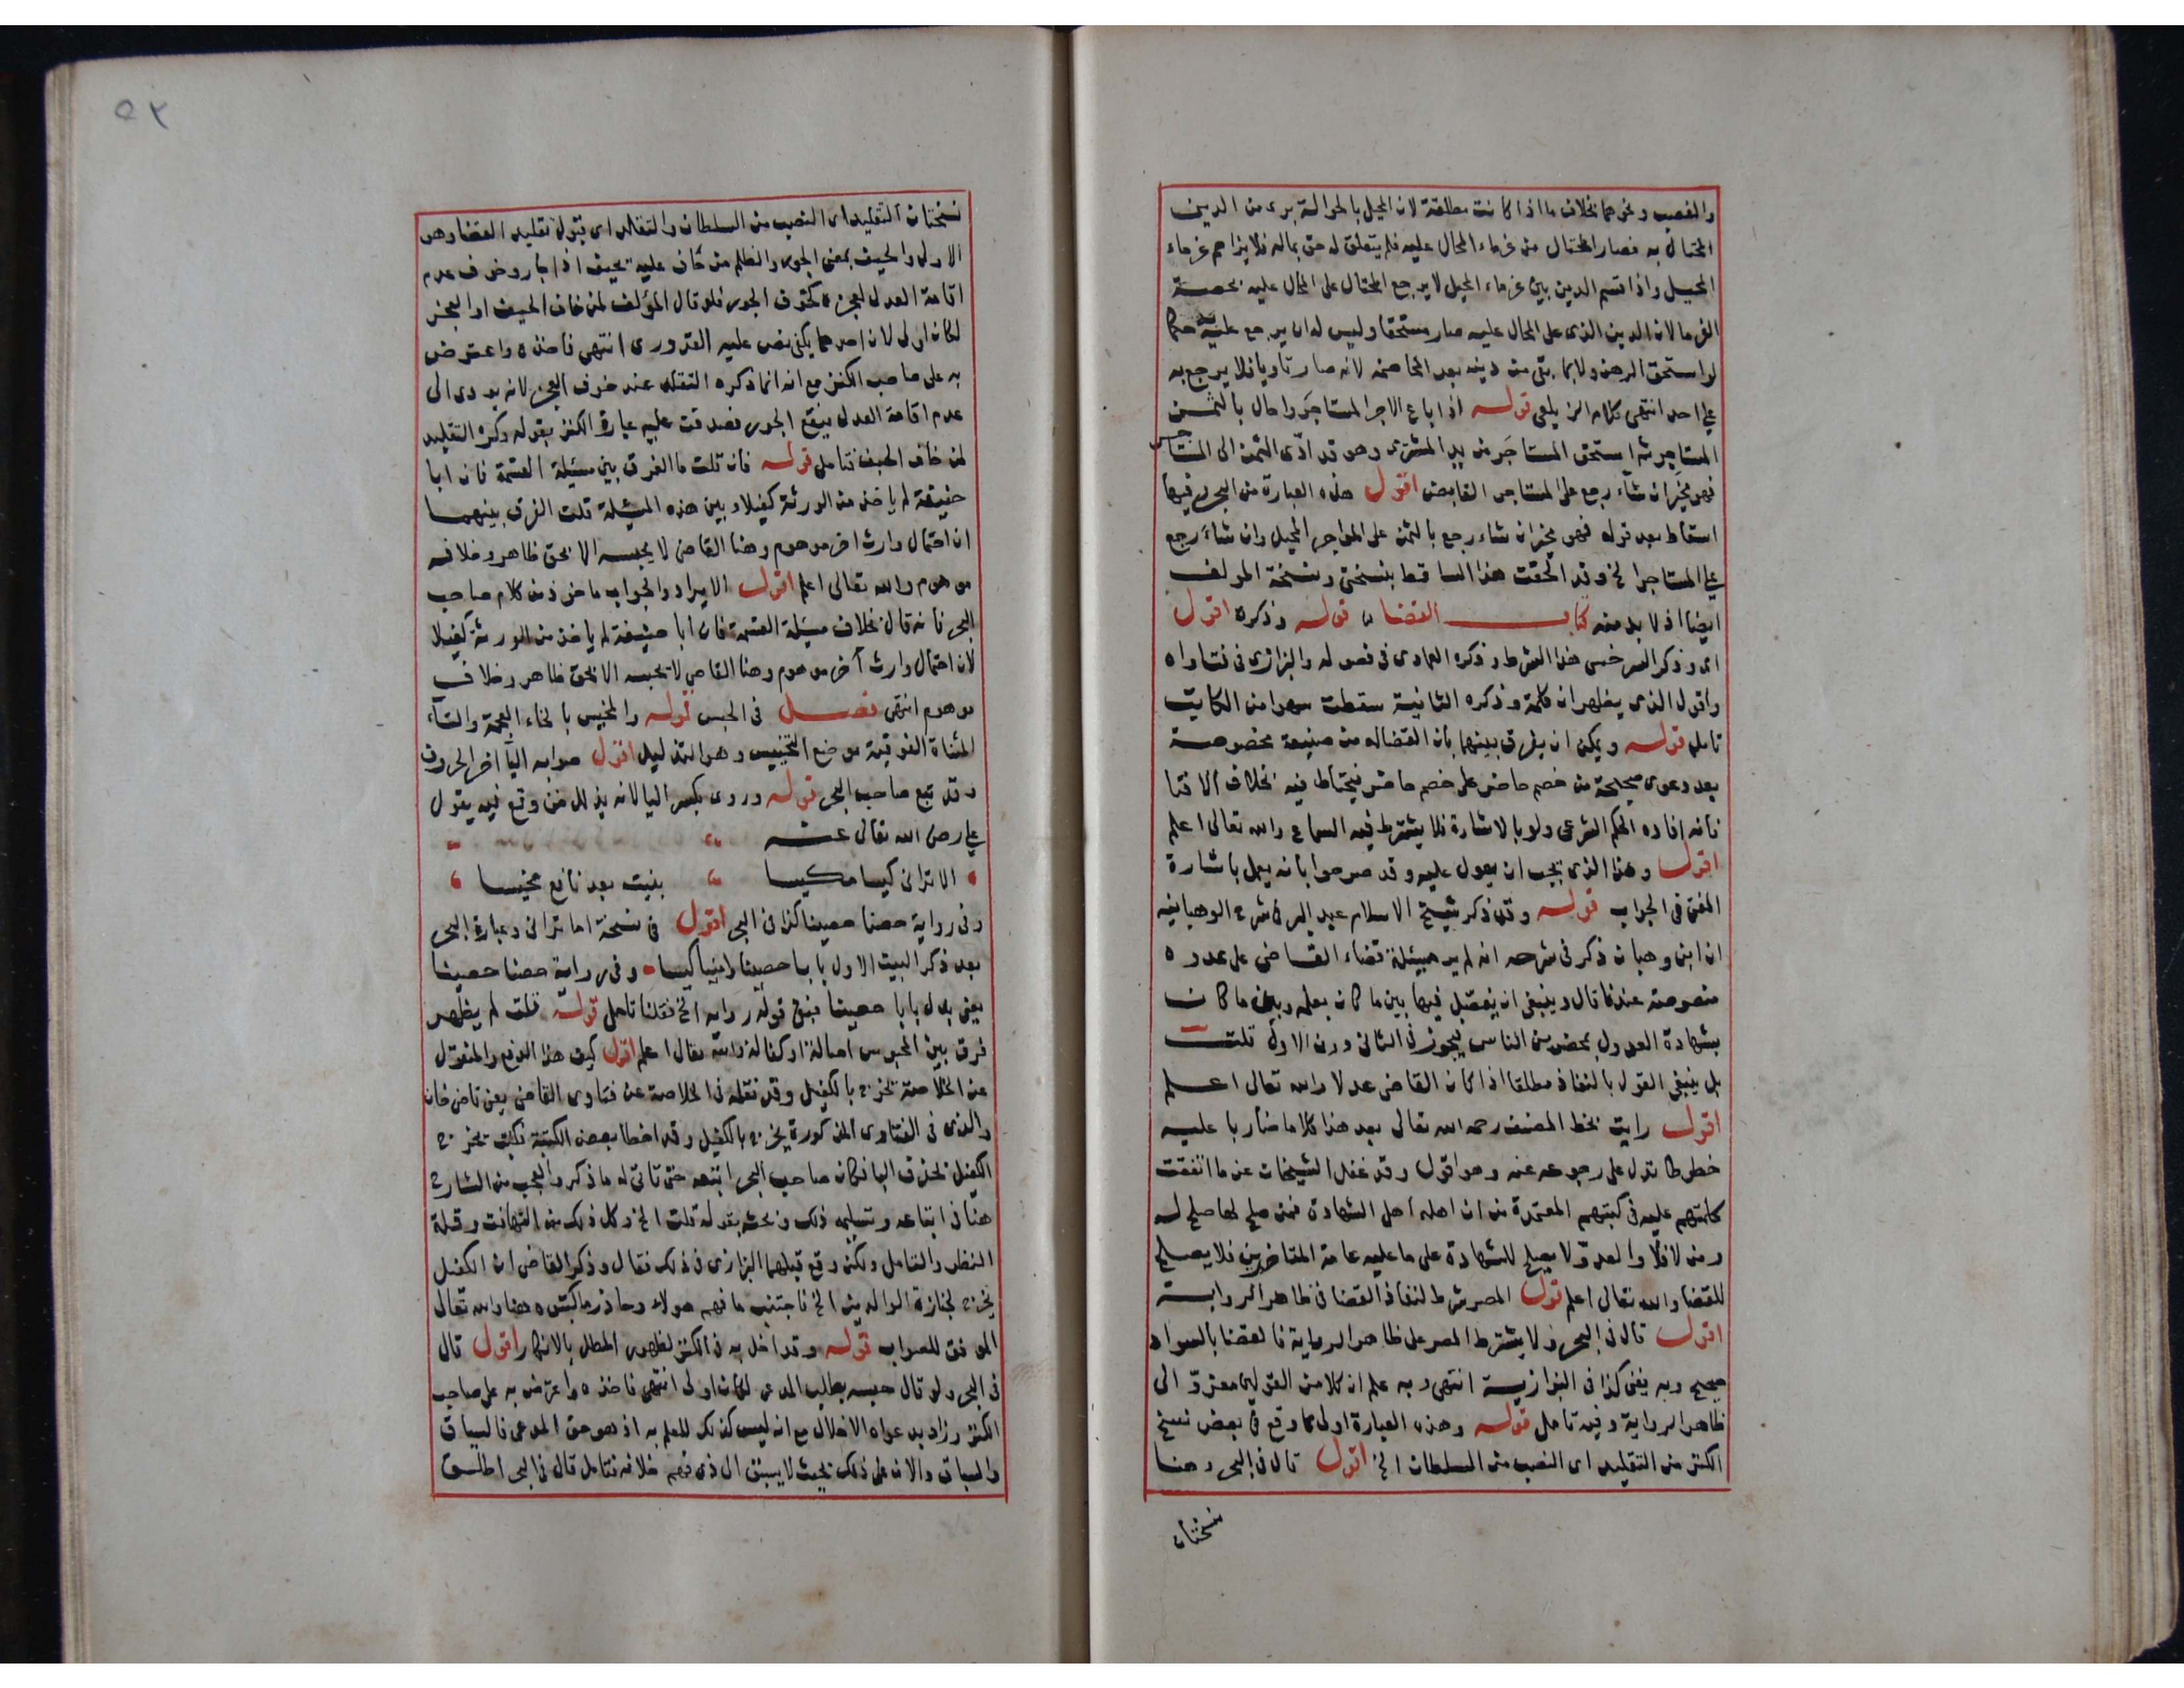 والغصب ونحوهما بخلاف ما اذا كانت مطلقة لان المحيل بالحوالة برى من الدين
المحتال به فصار المحتال من غرماء المحال عليه فلم يتعلق له حق بماله فلا يزاحم غرماء
المحيل واذا قسم الدين بين غرماء المحيل لا يرجع المحتال على المحال عليه بحصة
الغرما لان الدين الذى على المحال عليه صار مستحقا وليس له ان يرجع عليه كما
لو استحق الرهن ولا بما بقى من دينه بعد المخاصمة لانه صار تاويا فلا يرجع به
على احد انتهى كلام الزيلعى قوله اذا باع الاجر المستاجَر واحال بالثمن
المستاجر ثم استحق المستاجَر من يد المشترى وهو قد ادّى الثمن الى المستاجر
فهو مخيَر ان شاء رجع على المستاجر القابض اقول هذه العبارة من البحر وفيها
اسقاط بعد قوله فهو مخير ان شاء رجع بالثمن على المواجر المحيل وان شاء رجع
على المستاجر الخ وقد الحقت هذا الساقط بنسختى ونسخة المولف
ايضا اذ لا بد منه كتاب القضاء قوله وذكره اقول
اى وذكر السرخسى هذا الشرط وذكره العمادى فى فصوله والبزازى فى فتاواه
واقول الذى يظهر ان كلمة وذكره الثانية سقطت سهوا من الكاتب
تامل قوله ويمكن ان يفرق بينهما بان القضا له من صنيعة مخصوصة
بعد دعوى صحيحة من خصم حاضر على خصم حاضر فيحتاط فيه بخلاف الافتا
فانه افاده الحكم الشرعى ولو بالاشارة فلا يشترط فيه السماع والله تعالى اعلم
اقول وهذا الذى يجب ان يعول عليه وقد صرحوا بانه يعمل باشارة
المفتى فى الجواب قوله وقد ذكر شيخ الاسلام عبد البر فى شرح الوهبانيه
ان ابن وهبان ذكر فى شرحه انه لم ير مسئلة قضاء القاضى على عدوه
منصوصة عندنا قال وينبغى ان يفصّل فيها بين ما كان بعلمه وبين ما كان
بشهادة العدول بمحضر من الناس يجوز فى الثانى دون الاول قلت
بل ينبغى القول بالنفاذ مطلقا اذا كان القاضى عدلا والله تعالى اعلم
اقول رايت بخط المصنف رحمه الله تعالى بعد هذا كلاما ضاربا عليه
خطوطا تدل على رجوعه عنه وهو اقول وقد غفل الشيخان عن ما اتفقت
كلمتهم عليه فى كتبهم المعتمدة من ان اهله اهل الشهادة فمن صلح لها صلح له
ومن لا فلا والعدوّ لا يصلح للشهادة على ما عليه عامة المتاخرين فلا يصلح
للقضا والله تعالى اعلم قوله المصر شرط لنفاذ القضا فى ظاهر الرواية
اقول قال فى البحر ولا يشترط المصر على ظاهر الرواية فالقضا بالسواد
صحيح وبه يفتى كذا فى البزازية انتهى وبه علم ان كلا من القولين معزوّ الى
ظاهر الرواية وفيه تامل قوله وهذه العبارة اولى مما وقع فى بعض نسخ
الكنز من التقليد اى النصب من السلطان الخ اقول قال فى البحر وهنا
نسختان
٥٢
نسختان التقليد اى النصب من السلطان والتقلد اى قبول تقليد القضا وهو
الاولى والحيف بمعنى الجور والظلم من حَاف عليه يحيف اذا جار وخوف عدم
اقامة العدل لعجزه كخوف الجور فلو قال المؤلف لمن خاف الحيف او العجز
لكان اولى لان احدهما يكفى نص عليه القدورى انتهى فاخذه واعترض
به على صاحب الكنز مع انه انما ذكره التقلد عند خوف العجز لانه يودى الى
عدم اقامة العدل فيقع الجور فصدقت عليه عبارة الكنز بقوله وكره التقليد
لمن خاف الحيف فتامل قوله فان قلت ما الفرق بين مسئلة القسمة فان ابا
حنيفة لم ياخذ من الورثة كفيلا وبين هذه المسئلة قلت الفرق بينهما
ان احتمال وارث اخر موهوم وهنا القاضى لا يحبسه الا بحق ظاهر وخلافه
موهوم والله تعالى اعلم اقول الايراد والجواب ماخوذ من كلام صاحب
البحر فانه قال بخلاف مسئلة القسمة فان ابا حنيفة لم ياخذ من الورثة كفيلا
لان احتمال وارث آخر موهوم وهنا القاضى لا يحبسه الا بحق ظاهر وخلافه
موهوم انتهى فصل فى الحبس قوله والمخيس بالخاء المعجمة والتاء
المثناة الفوقية موضع التخييس وهو التذليل اقول صوابه اليآ اخر الحروف
وقد تبع صاحب البحر قوله وروى بكسر اليا لانه يذلل من وقع فيه يقول
على رضى الله تعالى عنه
الا ترانى كيسا مكيسا بنيت بعد نافع مخيسا
وفى رواية حصنا حصينا كذا فى البحر اقول فى نسخة اما ترانى وعبارة البحر
بعد ذكر البيت الاول بابا حصينا وامينا كيسا وفى رواية حصنا حصينا
يعنى بدل بابا حصينا فبقى قوله رواية الخ فقلنا تامل قوله قلت لم يظهر
فرق بين المحبوس اصالة او كفالة والله تعالى اعلم اقول كيف هذا الدفع والمنقول
عن الخلاصة يخرج بالكفيل وقد نقله فى الخلاصة عن فتاوى القاضى يعنى قاضى خان
والذى فى الفتاوى المذكورة يخرج بالكفيل وقد اخطا بعض الكتبة فكتب يخرج
الكفيل بحذف البا فكان صاحب البحر انتهه حتى تاتى له ما ذكر والعجب من الشارح
هنا فى اتباعه وتسليمه ذلك وبحثه بقوله قلت الخ وكل ذلك من التهافت وقلة
النظر والتامل ولكن وقع قبلهما البزازى فى ذلك فقال وذكر القاضى ان الكفيل
يخرج لجنازة الوالدين الخ فاجتنب ما فهم هولاء وحاذر ما كتبوه هنا والله تعالى
الموفق للصواب قوله وقد اخل به فى الكنز لظهور المطل بالانكار اقول قال
فى البحر ولو قال حبسه بطلب المدعى لكان اولى انتهى فاخذه واعترض به على صاحب
الكنز وزاد بدعواه الاخلال مع انه ليس كذلك للعلم به اذ هو حق المدعى فالسياق
والسباق دالان على ذلك بحيث لا يسبق الى ذى فهم خلافه فتامل قال فى البحر اطلق